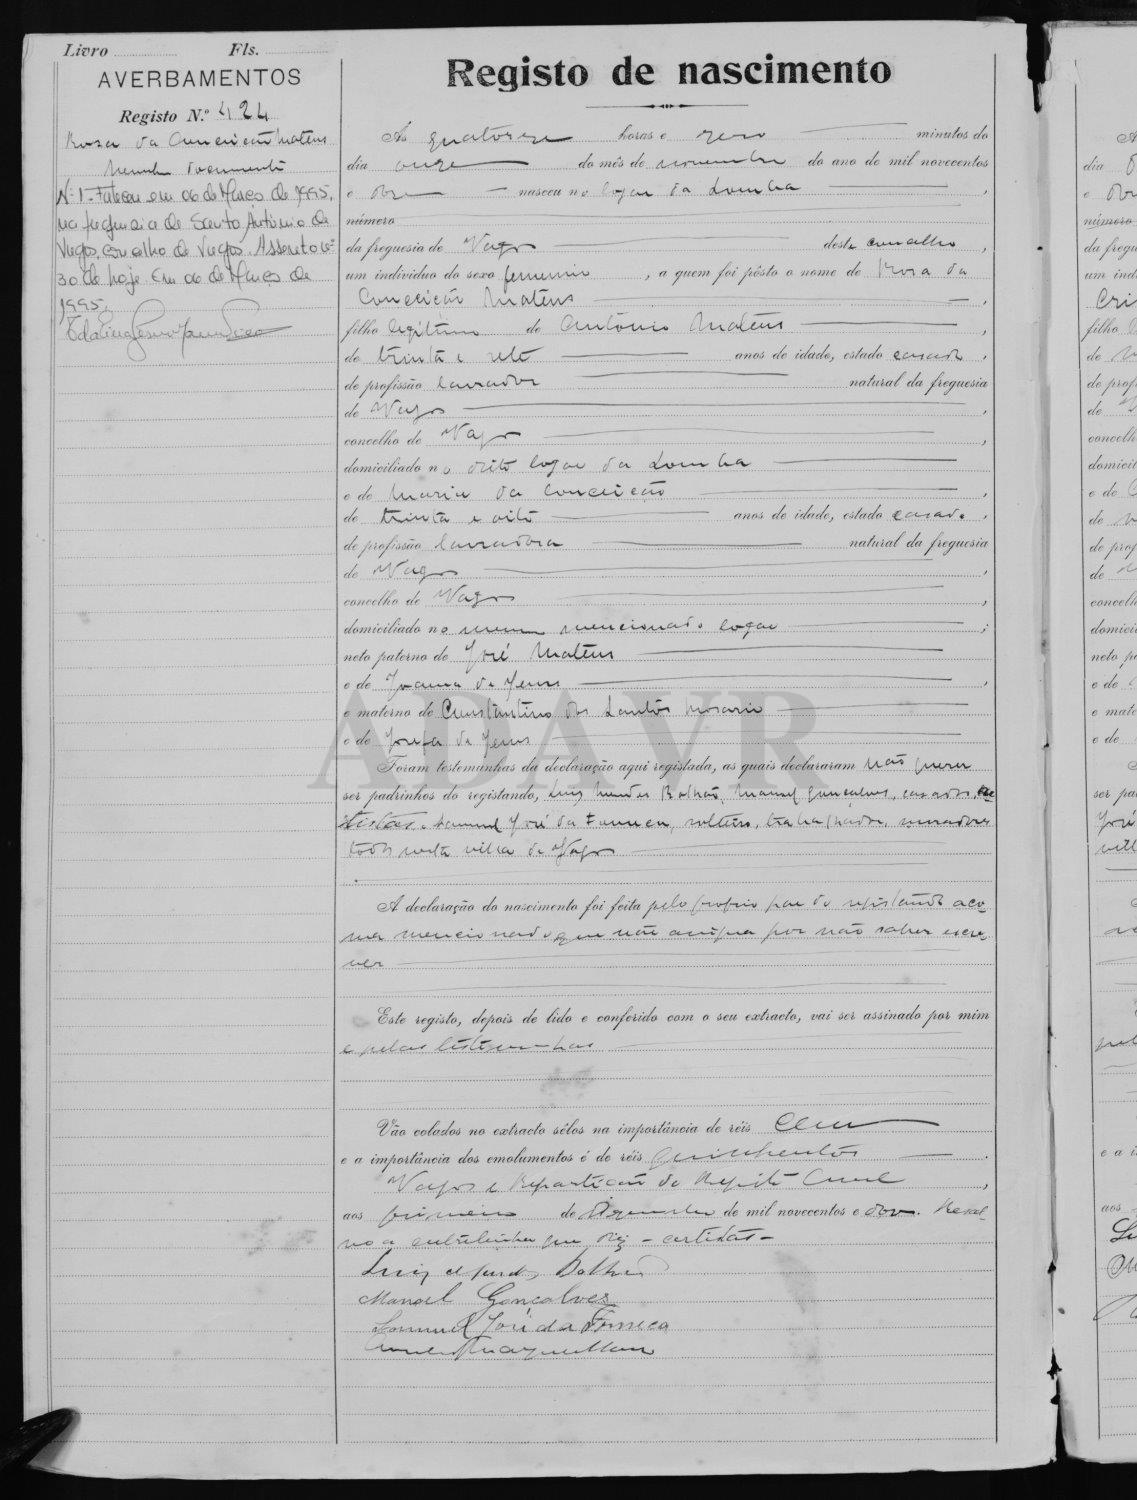 Livro Fls.
AVERBAMENTOS
Registo N.º 424
Rosa da Conceição Mateus
Nenhum documento
N.º 1 - Faleceu em 06 de Março de 1995,
na freguesia de Santo António de
Vagos, concelho de Vagos. Assento n.º
30 de hoje. Em 06 de Março de
1995.
Registo de nascimento
Ás quatorze horas e zero minutos do
dia onze do mês de novembro do ano de mil novecentos
e onze nasceu no logar da Lomba ,
número
da freguesia de Vagos deste concelho ,
um individuo do sexo feminino , a quem foi pôsto o nome de Rosa da
Conceição Mateus ,
filho legitimo de António Mateus ,
de trinta e sete anos de idade, estado casado ,
de profissão lavrador natural da freguesia
de Vagos ,
concelho de Vagos ,
domiciliado no dito logar da Lomba
e de Maria da Conceição ,
de trinta e oito anos de idade, estado casada ,
de profissão lavradora natural da freguesia
de Vagos ,
concelho de Vagos ,
domiciliado no mesmo mencionado logar ;
neto paterno de José Mateus
e de Joanna de Jesus ,
e materno de Constantino dos Santos Rosario
e de Josefa de Jesus
Foram testemunhas da declaração aqui registada, as quais declararam não querer
ser padrinhos do registando, Luiz Mendes Bolhão, Manuel Gonçalves, casados,
Samuel José da Fonseca, solteiro, trabalhador, moradores
todos nesta villa de Vagos
A declaração do nascimento foi feita pelo proprio pae do registando aci-
ma mencionado que não assigna por não saber escre-
ver
Este registo, depois de lido e conferido com o seu extracto, vai ser assinado por mim
e pelas testemunhas
Vão colados no extracto sêlos na importância de réis Cem
e a importância dos emolumentos é de réis quinhentos .
Vagos e Repartição do Registo Civil ,
aos primeiro de Dezembro de mil novecentos e onze. Resal-
vo a entrelinha que diz
Luiz Mendes Bolhão
Manoel Gonçalves
Samuel José da Fonseca
ADAVR